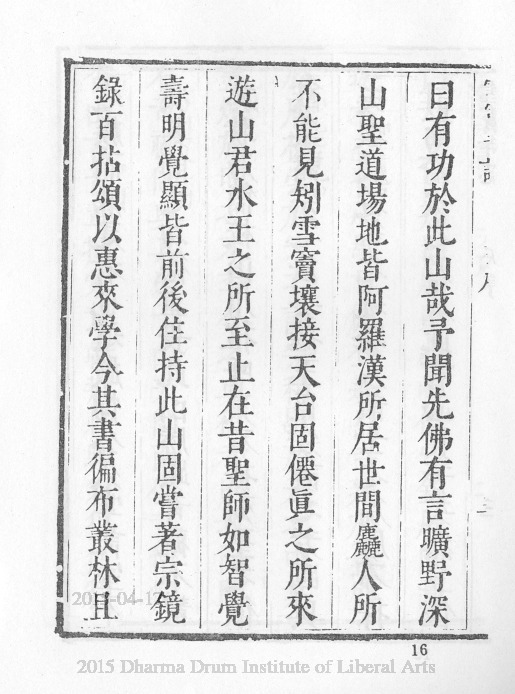 曰有功於此山哉予聞先佛有言曠野深
山聖道場地皆阿羅漢所居世間麤人所
不能見矧雪竇壤接天台固僊眞之所來
遊山君水王之所至止在昔聖師如智覺
壽明覺顯皆前後住持此山固嘗著宗鏡
錄百拈頌以惠來學今其書徧布叢林且
16
2015 Dharma Drum Institute of Liberal Arts